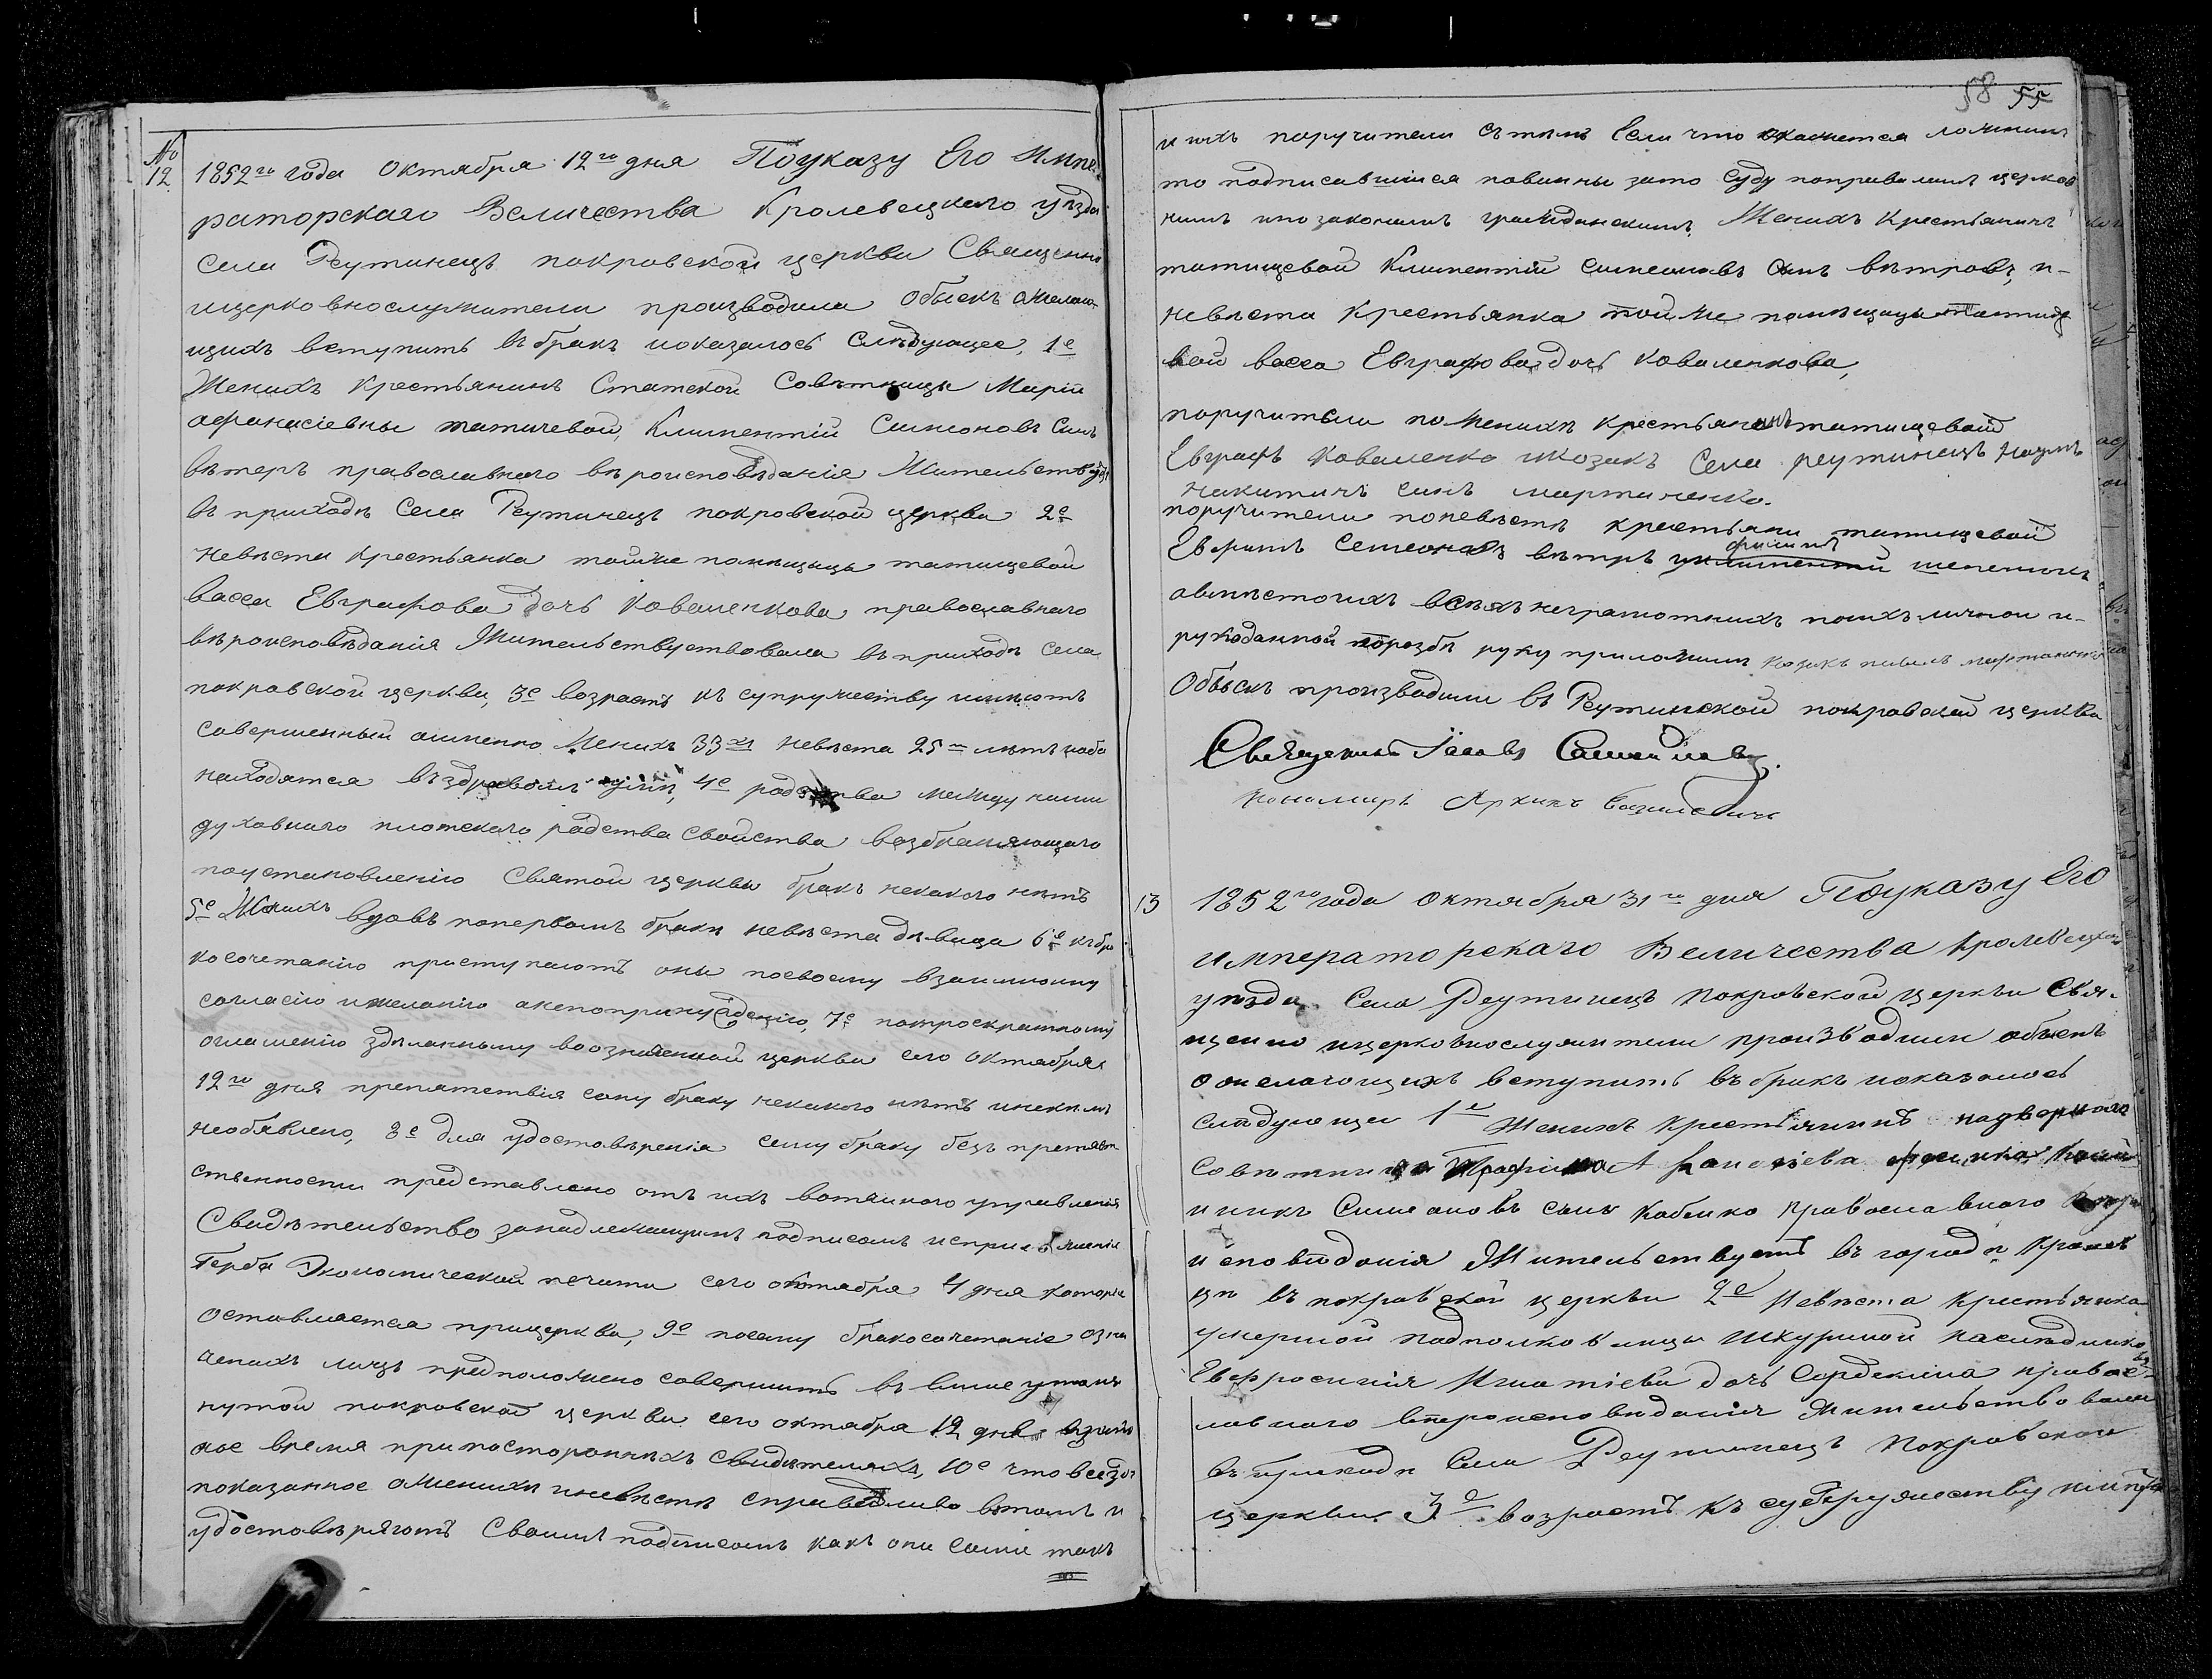 №
12
1852го года Октября 12го дня Поуказу Его Импе
раторскаго Величества Кролевецкаго уѣзда
села Реутинецъ покровской церкви Священно
ицерковнослужители производила Обыскъ ожелаю
щихъ вступить въбракъ иоказалось Слѣдующее, 1е
Женихъ крестьянинъ Статской Совѣтницы Маріи
афанасіевны татичевой, Климентій Симоновъ Сынъ
вѣтеръ православнаго вѣроисповѣданія Жительствуетъ
въ приходѣ Села Реутинецъ покровской церкви 2е
Невѣста крестьянка тойже помѣщицы татищевой
васса Евграфова дочь коваленкова православнаго
вѣроисповѣданія Жительствуствовала въприходѣ села
покровской церкви, 3е возрастъ къ супружеству имѣютъ
совершенный аименно Женихъ 33хъ невѣста 25 лѣтъ иоба
находятся въздравомъ умѣ, 4е родства между ними
духовнаго плотскаго родства свойства возбраняющаго
поустановленію Святой церкви бракъ некакого нѣтъ
5е Женихъ вдовъ поперВомъ бракѣ невѣста дѣвица 6е къбра
косочетанію приступаютъ оны посвоему взаимному
согласію ижеланію анепопринужденію, 7е потроекратному
оглашенію здѣланному воозначенной церкви сего октября
12го дня препятствія сему браку некакого нѣтъ инекѣмъ
необявлено, 8е для удостовѣренія сему браку безъ препятст
ственности представлено отъ ихъ вотчиного управленія
Свидѣтельство занадлежащимъ подписомъ исприложенія
Герба Экономической печати сего октября 4 дня которое
оставляется прицеркви, 9е посему бракосочетаніе озна
ченыхъ лицъ предположено совершить въ вышеупомя
нутой покровской церкви сего октября 12 дня
ное время припостороннихъ свидѣтеляхъ, 10е что всездѣ
показанное оженихѣ иневѣстѣ справедливо втомъ и
удостовѣряютъ Своимъ подписомъ какъ они сами такъ
58 55
и ихъ поручители стѣмъ Если что окажется ложнимъ
то подписавшися повинны зато суду поправиламъ церков
нимъ ипозаконамъ гражданскимъ. Женихъ Крестьянинъ
татищевой Климентій симеоновъ сынъ вѣтровъ, и-
невѣста Крестьянка тойже помѣщицы татище
вой васса Евграфова дочь коваленкова,
поручители поженихѣ крестьянинъ татищевой
Евграфъ Коваленко икозакъ Села реутинецъ Наумъ
никитичъ сынъ мартиненко.
поручители поневѣстѣ крестьяни татищевой
Ефимъ Семеновъ вѣтръ филипъ иклиментій шепетикъ
авмѣстоихъ всѣхънеграмотнихъ поихъличной и-
рукоданной прозбѣ руку приложилъ козакъ
Обыскъ производили въ Реутинской покровской церкви
Священникъ Іаковъ Самойловъ.
Пономарь Архипъ Базилевичъ
13
1852го года Октября 31го дня Поуказу Его
императорскаго Величества Кролевецкаго
уѣзда Села Реутинецъ покровской церкви Свя-
щенно ицерковнослужители производили обыскъ
ожелающихъ вступить въбракъ иоказалось
слѣдующее 1е Женихъ крестьянинъ надворнаго
Совѣтника
Симеоновъ сынъ Кобыко Православного вѣро
исповѣданія Жительствуетъ въ городѣ Кролев
цѣ въ покровской церкви 2е Невѣста крестьянка
умершой подполковницы Шкуриной наслѣднико
Евфросинія Игнатіева дочь Сердекина правос-
лавного вѣроисповѣданія Жительствовала
въ приходѣ Села Реутинецъ Покровской
церкви 3е возрастъ къ супружеству имѣютъ